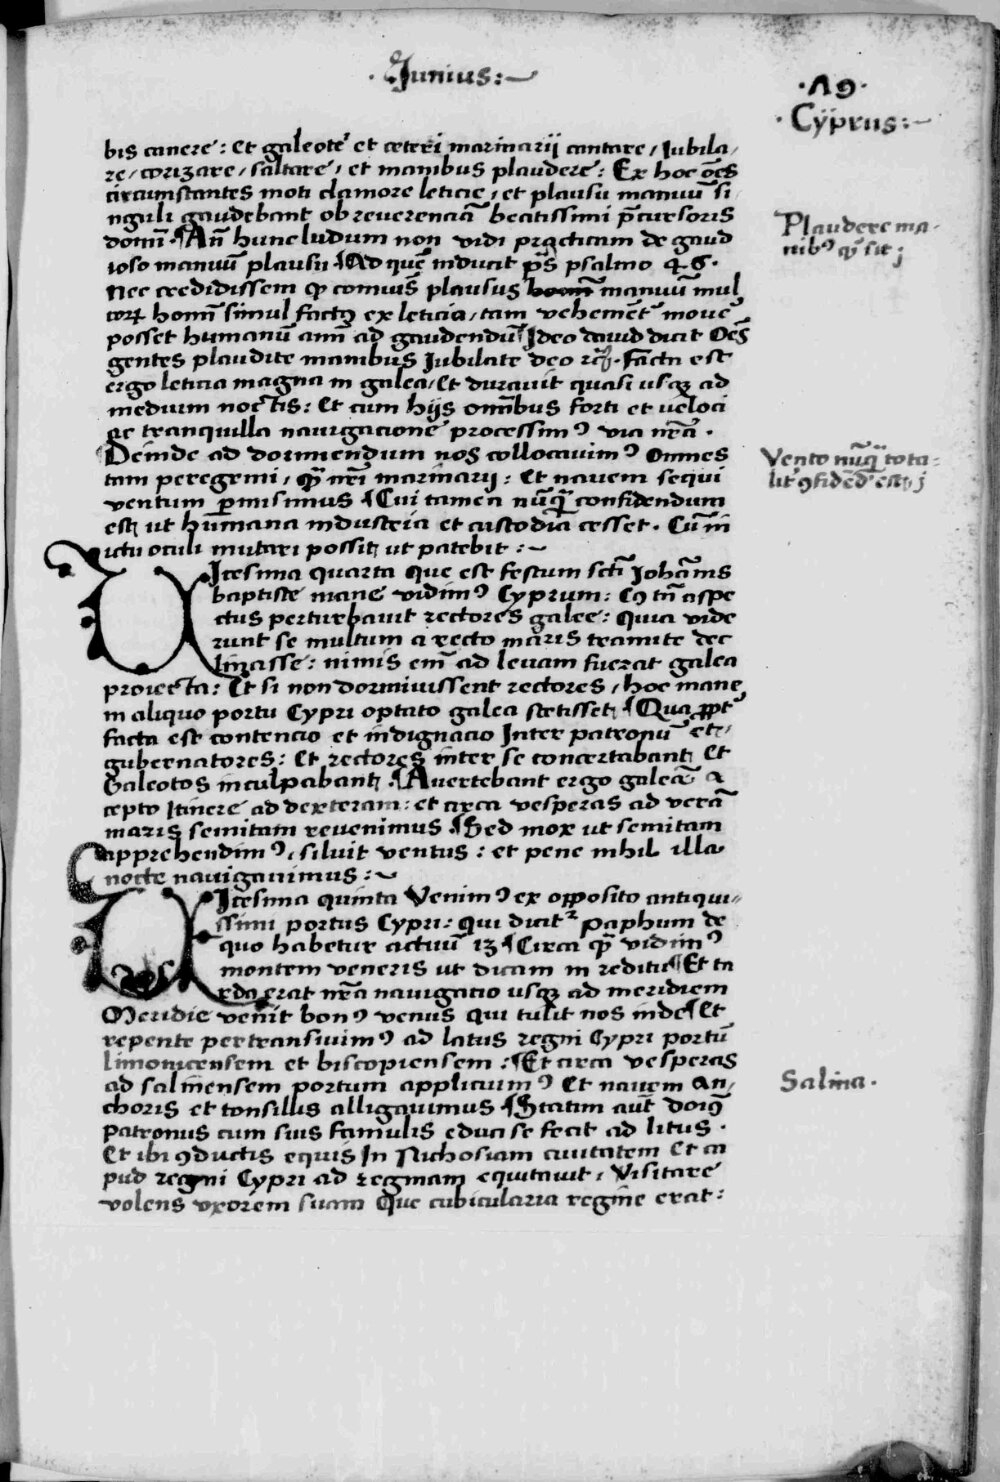 · Junius :~
· Λ9 ·
· Cÿprus :~
bis canere : Et galeote et ceteri marinarii cantare / Iubila,
re / corizare / saltare / et manibus plaudere : Ex hoc oēs
circumstantes moti clamore leticie / et plausu manuū si,
nguli gaudebant ob reverenciā beatissimi p̄cursoris
domī · ¶ Añ hunc ludum non vidi practicam de gaud
ioso manuū plausu ¶ Ad quē inducit p̄s psalmo 46 ·
Nec credidissem ꝙ comunis plausus manuū mul
toꝝ homīn simul factꝰ ex leticia / tam vehemēt movē
posset humanū anim̄ ad gaudendū ¶ Ideo david dicit Oēs
gentes plaudite manibus Iubilate deo · facta est
ergo leticia magna in galea / Et duravit quasi usqꝫ ad
medium noctis : Et cum hijs omībus forti et veloci
ac tranquilla navigacione processimꝰ via nr̄a ·
Deinde ad dormiendum nos collocavimꝰ Omnes
tam peregrini / qᷓ nr̄i marinarii : Et navem sequi
ventum p̄misimus ¶ Cui tamen nūqᷓ confidendum
est / ut humana industria et custodia cesset · Cū in
ictu oculi mutari possit / ut patebit :~
VIcesima quarta que est festum scti Iohānis
baptiste mane vidimꝰ Cyprum : Cꝰ tn̄ aspe
ctus perturbavit rectores galee : Quia vide
runt se multum a recto maris tramite dec
linasse : nimis em̄ ad levam fuerat galea
proiecta : Et si non dormivissent rectores / hoc mane
in aliquo portu Cypri optato galea stetisset ¶ Qua ꝓpt̄
facta est contencio et indignacio Inter patronū et
gubernatores : Et rectores inter se concertabant Et
Galeotos inculpabant · ¶ Avertebant ergo galeā a
cepto Itinere ad dexteram : et circa vesperas ad verā
maris semitam revenimus ¶ Sed mox ut semitam
apprehendimꝰ / siluit ventus : et pene nihil illa
nocte navigavimus :~
VIcesima quinta Venimꝰ ex opposito antiqui,
ssimi portus Cypri : Qui dicitr Paphum de
quo habetur actuū 13 ¶ Circa qᷓ vidimꝰ
montem veneris ut dicam in reditu ¶ Et ta
rda erat nr̄a navigacio usqꝫ ad meridiem
Meridie venit bonꝰ venus qui tulit nos inde ¶ Et
repente pertransivimꝰ ad latus regni Cypri portū
limonicensem et biscopiensem : ¶ Et circa vesperas
ad salinensem portum applicuimꝰ Et navem an,
choris et tonsillis alligavimus ¶ Statim aūt domꝰ
Patronus cum suis famulis educi se fecit ad litus ·
Et ibi ꝯductis equis In Nichosiam civitatem Et ca
pud regni Cypri ad reginam equitavit / Visitare
volens uxorem suam Que cubicularia regine erat :
Plaudere ma,
nibꝰ
Vento nūqᷓ tota=
lit̄ ꝯfidēd est
Salina ·